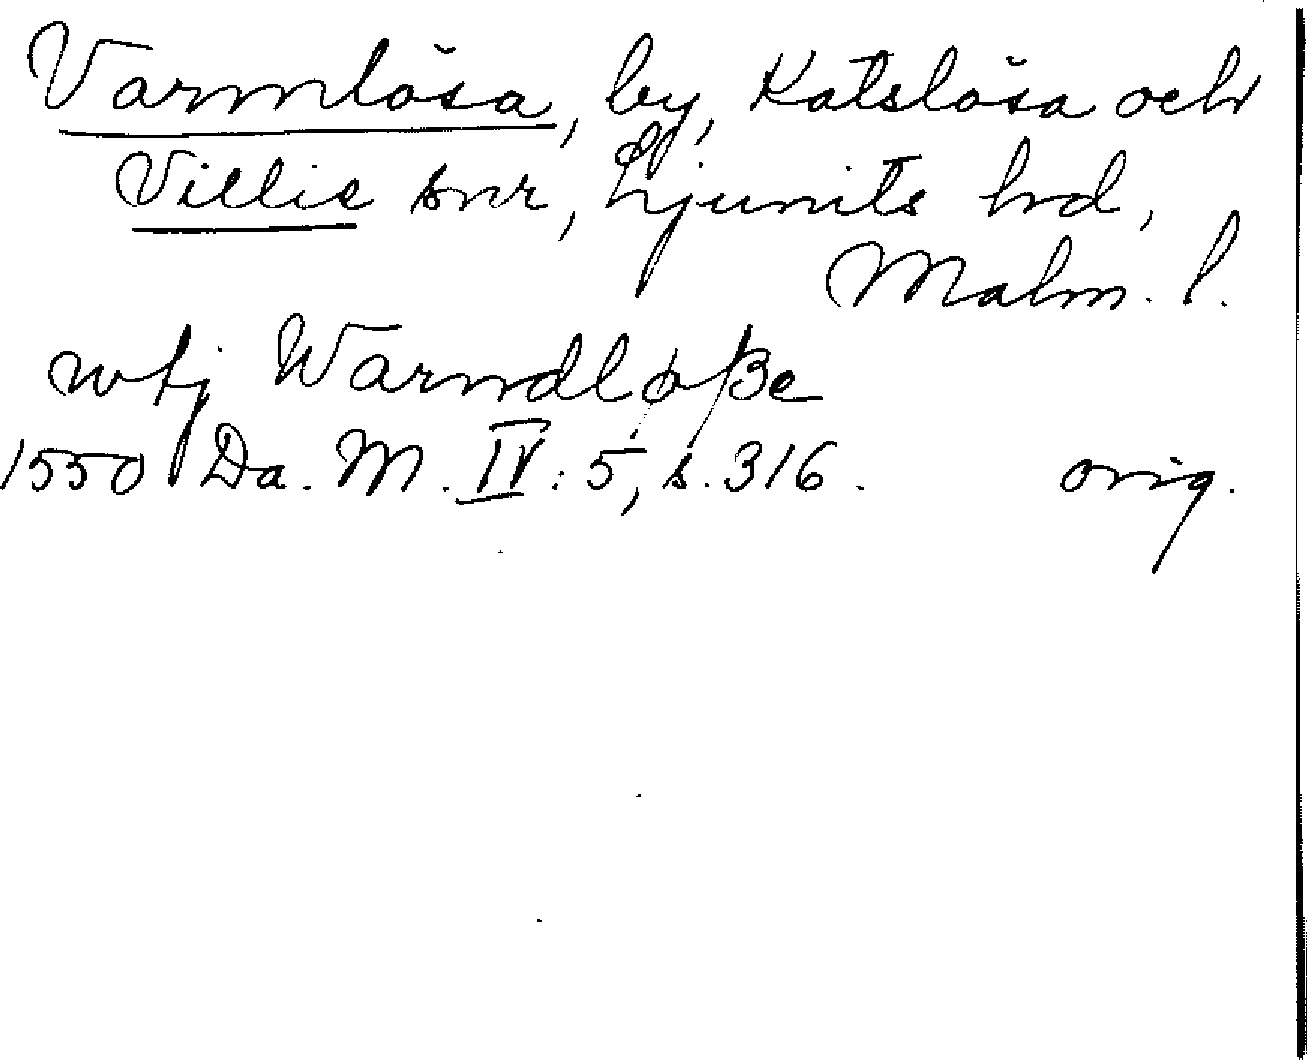 Varmlösa, by, Katslösa och
Villie snr, Ljunits hd,
Malm. l.
udj Warndløße
1550 Da. M. IV: 5, s. 316. orig.